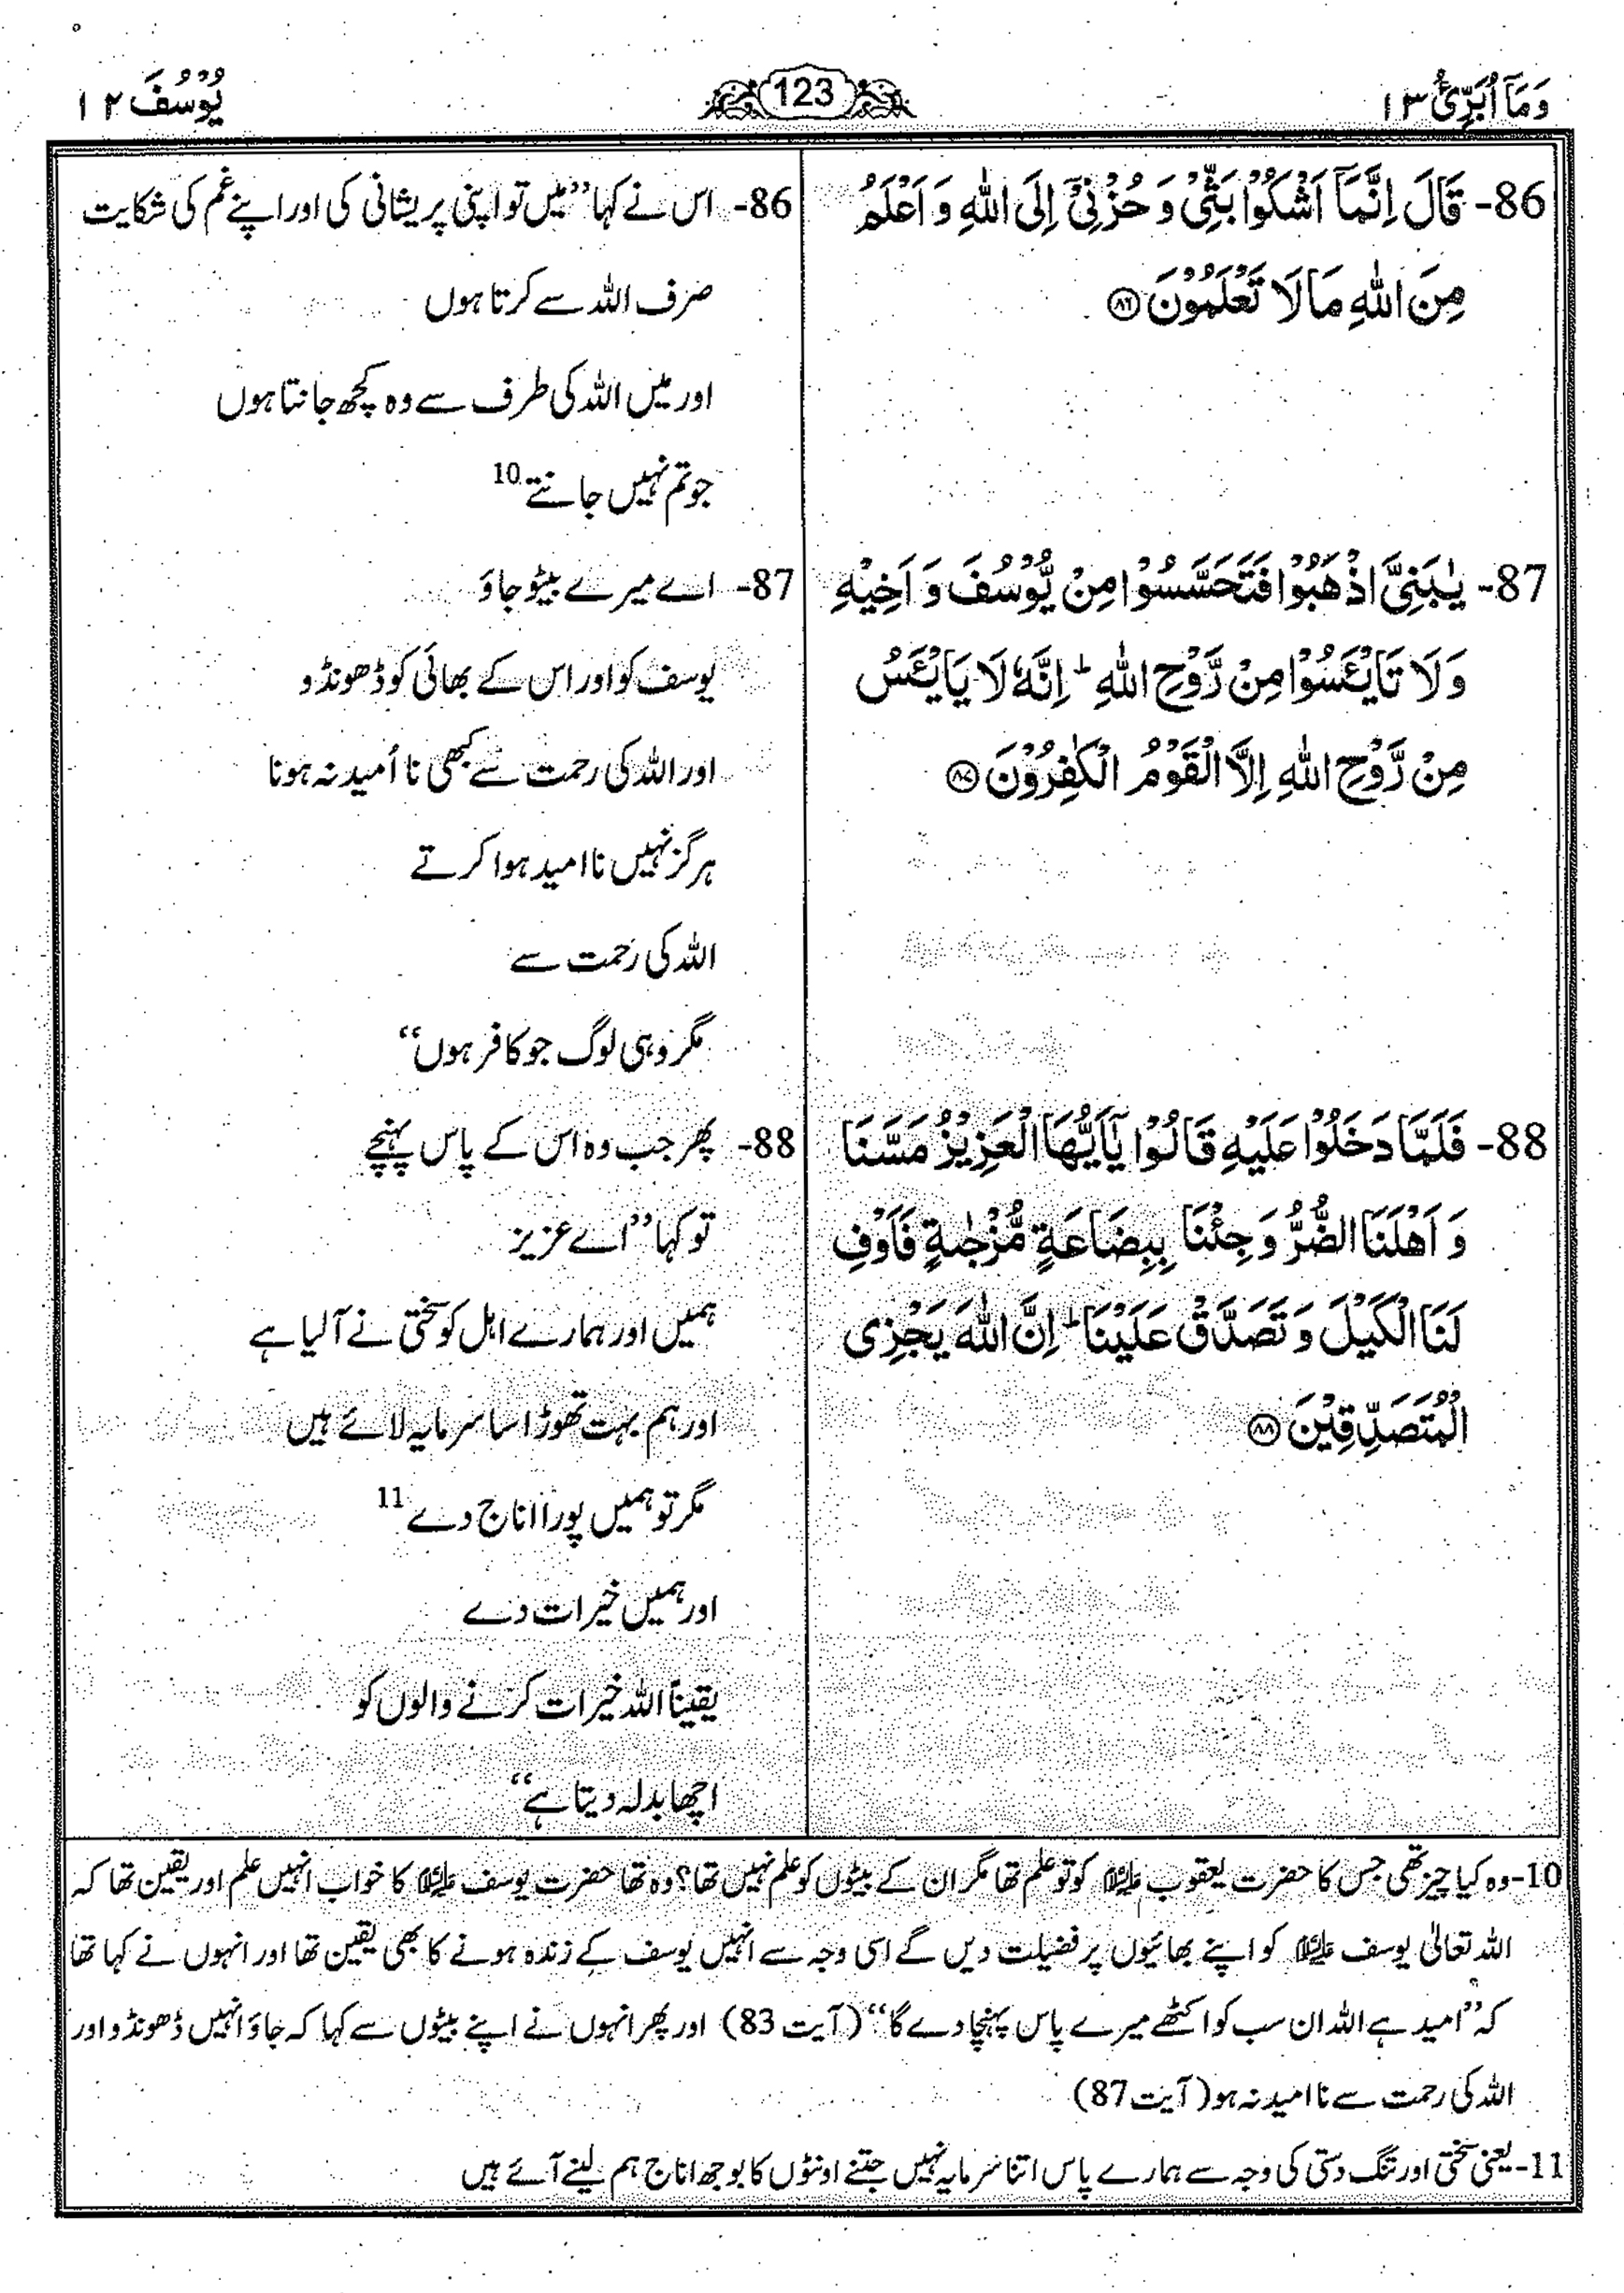 وَمَآ اُبَرِّئُ ١٣
123
يُوْسُفَ ١٢
86- قَالَ اِنَّمَاۤ اَشْكُوْا بَثِّیْ وَ حُزْنِیْۤ اِلَى اللّٰهِ وَ اَعْلَمُ
مِنَ اللّٰهِ مَا لَا تَعْلَمُوْنَ ﴿۸۶﴾
87- یٰبَنِیَّ اذْهَبُوْا فَتَحَسَّسُوْا مِنْ یُّوْسُفَ وَ اَخِیْهِ
وَ لَا تَایْـَٔسُوْا مِنْ رَّوْحِ اللّٰهِ ؕ اِنَّهٗ لَا یَایْـَٔسُ
مِنْ رَّوْحِ اللّٰهِ اِلَّا الْقَوْمُ الْكٰفِرُوْنَ ﴿۸۷﴾
88- فَلَمَّا دَخَلُوْا عَلَیْهِ قَالُوْا یٰۤاَیُّهَا الْعَزِیْزُ مَسَّنَا
وَ اَهْلَنَا الضُّرُّ وَ جِئْنَا بِبِضَاعَةٍ مُّزْجٰىةٍ فَاَوْفِ
لَنَا الْكَیْلَ وَ تَصَدَّقْ عَلَیْنَا ؕ اِنَّ اللّٰهَ یَجْزِی
الْمُتَصَدِّقِیْنَ ﴿۸۸﴾
86- اس نے کہا ”میں تو اپنی پریشانی کی اور اپنے غم کی شکایت
صرف اللہ سے کرتا ہوں
اور میں اللہ کی طرف سے وہ کچھ جانتا ہوں
جو تم نہیں جانتے 10
87- اے میرے بیٹو جاؤ
یوسف کو اور اس کے بھائی کو ڈھونڈو
اور اللہ کی رحمت سے کبھی نا اُمید نہ ہونا
ہرگز نہیں نا امید ہوا کرتے
اللہ کی رحمت سے
مگر وہی لوگ جو کافر ہوں“
88- پھر جب وہ اس کے پاس پہنچے
تو کہا ”اے عزیز
ہمیں اور ہمارے اہل کو سختی نے آ لیا ہے
اور ہم بہت تھوڑا سا سرمایہ لائے ہیں
مگر تو ہمیں پورا اناج دے 11
اور ہمیں خیرات دے
یقیناً اللہ خیرات کرنے والوں کو
اچھا بدلہ دیتا ہے“
10- وہ کیا چیز تھی جس کا حضرت یعقوب علیہ السلام کو تو علم تھا مگر ان کے بیٹوں کو علم نہیں تھا؟ وہ تھا حضرت یوسف علیہ السلام کا خواب انہیں علم اور یقین تھا کہ
اللہ تعالیٰ یوسف علیہ السلام کو اپنے بھائیوں پر فضیلت دیں گے اسی وجہ سے انہیں یوسف کے زندہ ہونے کا بھی یقین تھا اور انہوں نے کہا تھا
کہ ”امید ہے اللہ ان سب کو اکٹھے میرے پاس پہنچا دے گا“ (آیت 83) اور پھر انہوں نے اپنے بیٹوں سے کہا کہ جاؤ انہیں ڈھونڈو اور
اللہ کی رحمت سے نا امید نہ ہو (آیت 87)
11- یعنی سختی اور تنگ دستی کی وجہ سے ہمارے پاس اتنا سرمایہ نہیں جتنے اونٹوں کا بوجھ اناج ہم لینے آئے ہیں